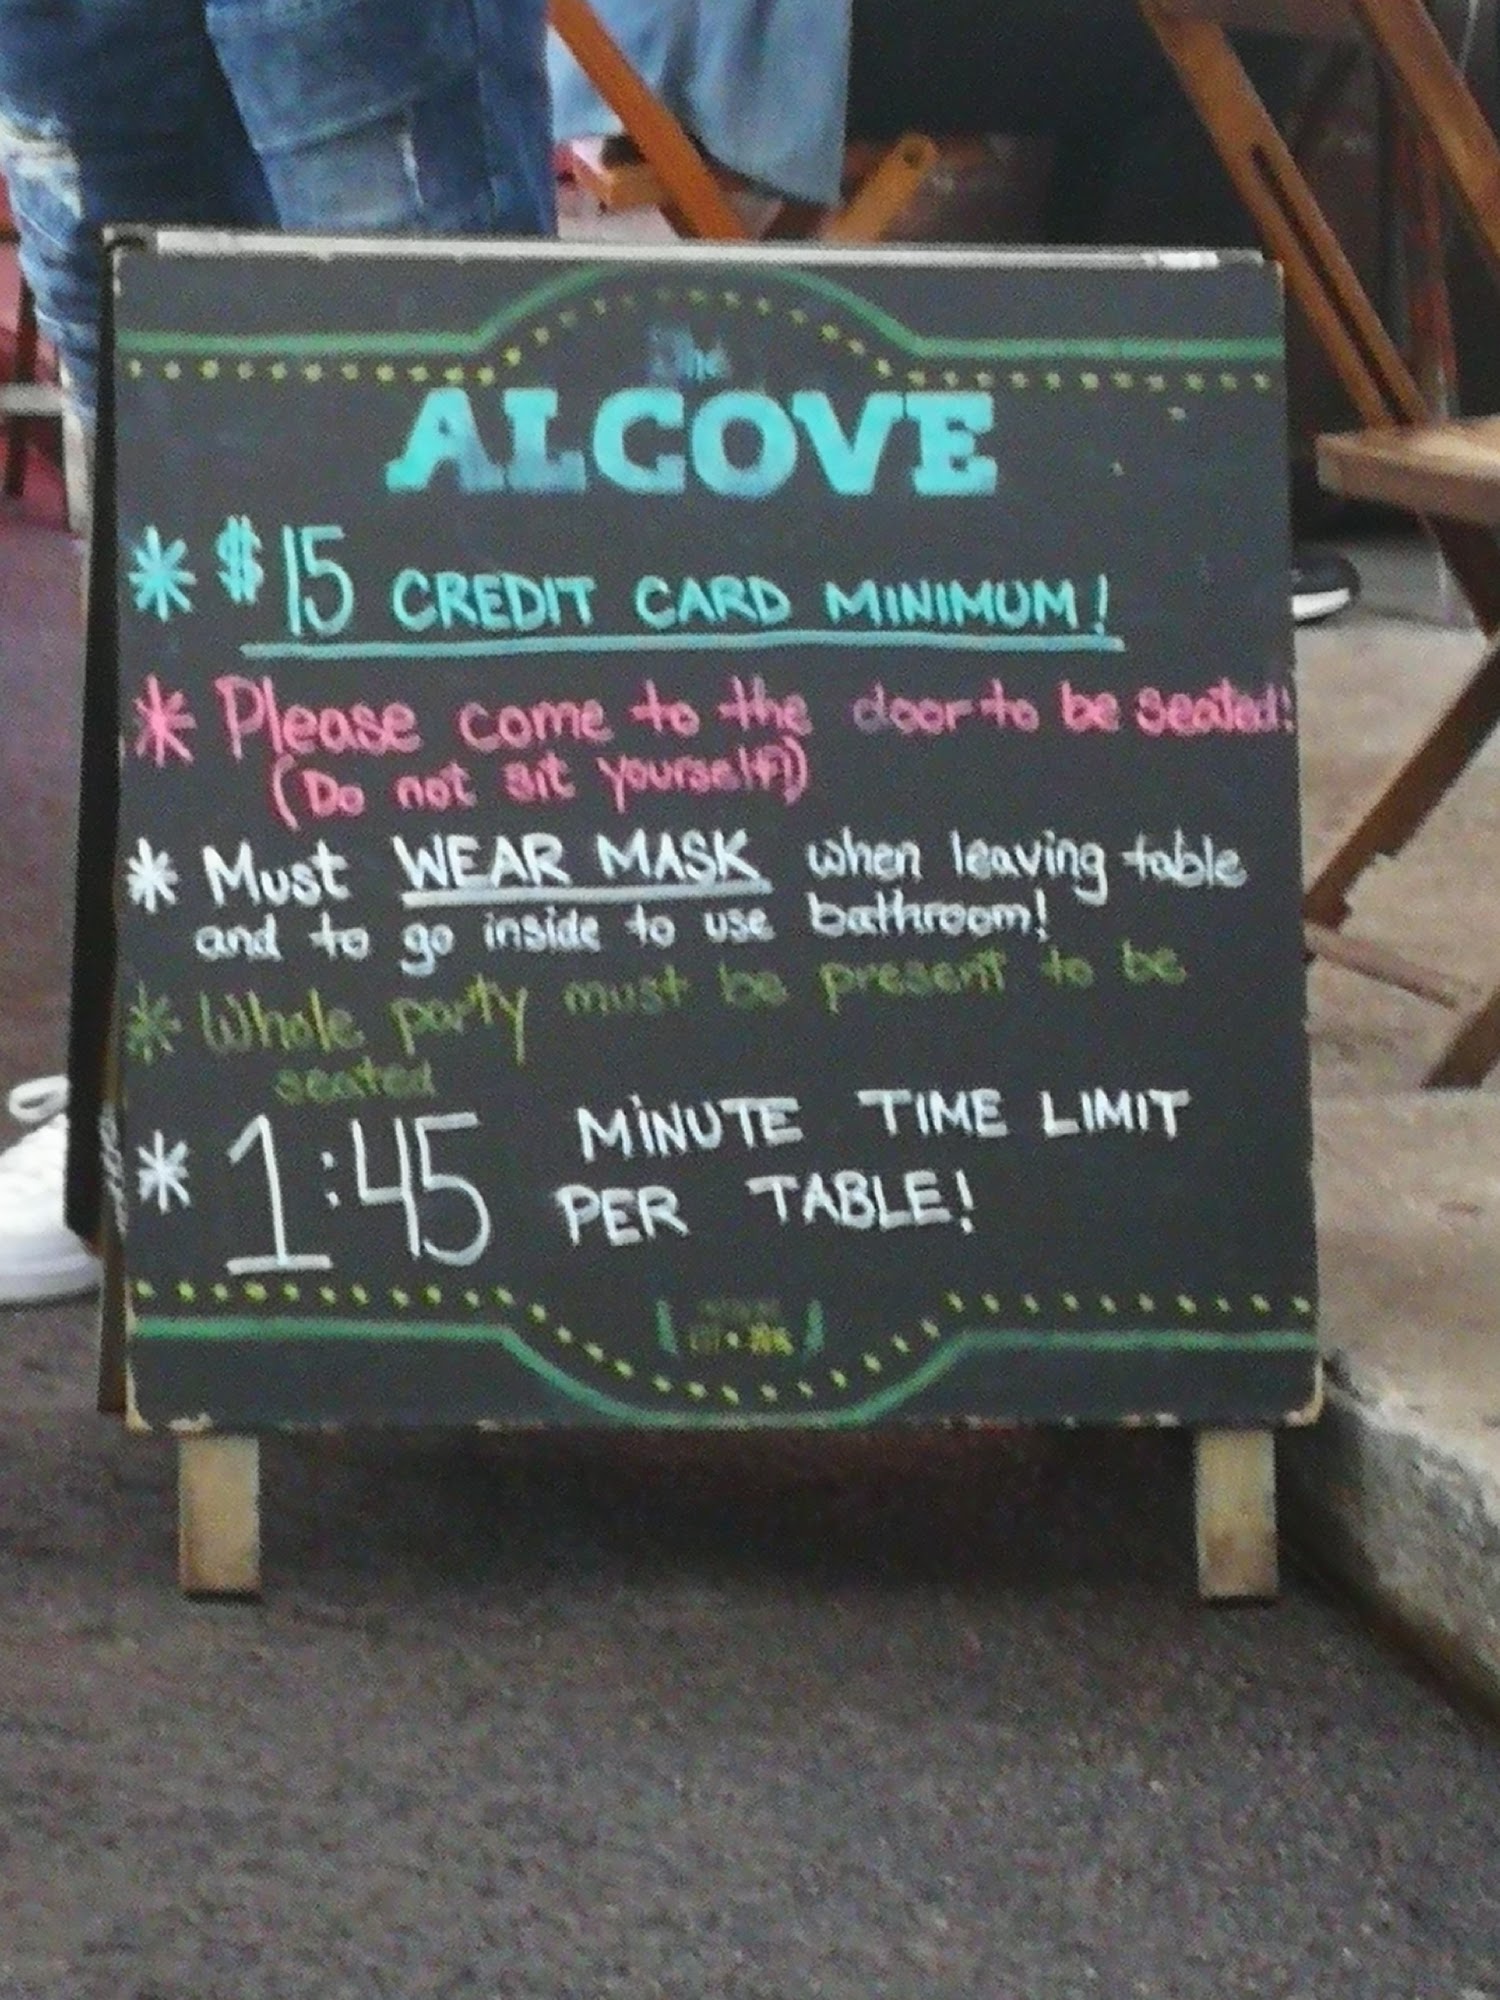 The
ALCOVE
* $15 CREDIT CARD MINIMUM!
* Please come to the door to be seated!
(Do not sit yourself!)
* Must WEAR MASK when leaving table
and to go inside to use bathroom!
* Whole party must be present to be
seated
* 1:45 MINUTE TIME LIMIT
PER TABLE!